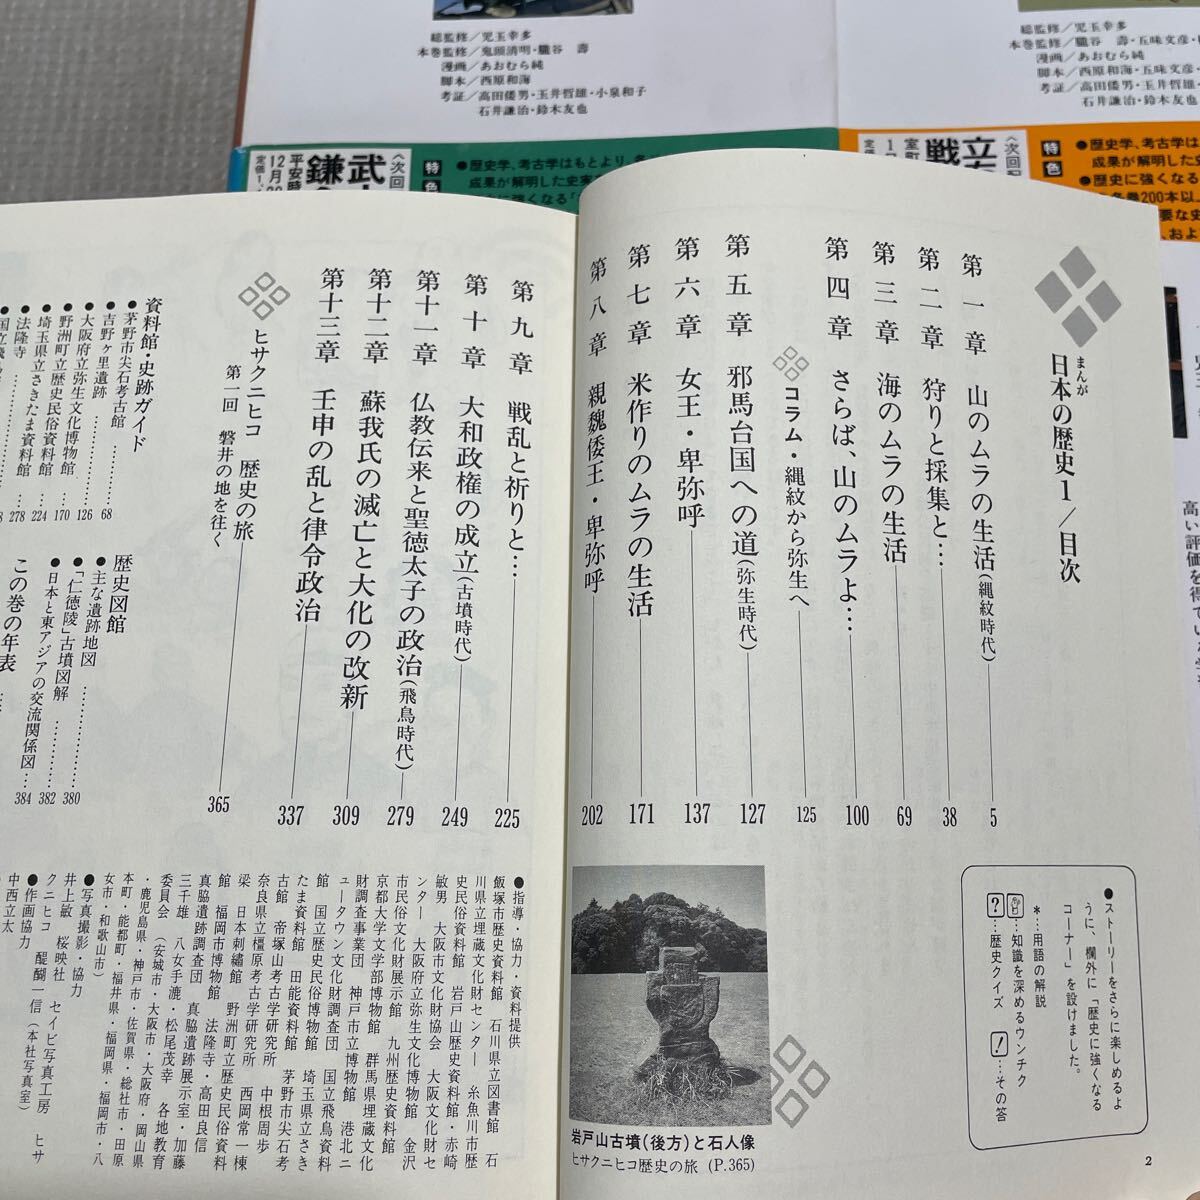 総監修／児玉幸多
本巻監修／鬼頭清明・朧谷　壽
漫画／あおむら純
脚本／西原和海
考証／高田倭男・玉井哲雄・小泉和子
石井謙治・鈴木友也
総監修／児玉幸多
本巻監修／朧谷　壽・五味文彦・
漫画／あおむら純
脚本／西原和海・五味文彦・
考証／高田倭男・玉井哲雄・
石井謙治・鈴木友也
特色
●歴史学、考古学はもとより、
成果が解明した史実
特色
●歴史学、考古学は
成果が解明した
●歴史に強くなる
まんが
日本の歴史1／目次
第一章　山のムラの生活(縄紋時代) 5
第二章　狩りと採集と… 38
第三章　海のムラの生活 69
第四章　さらば、山のムラよ… 100
コラム・縄紋から弥生へ 125
第五章　邪馬台国への道(弥生時代) 127
第六章　女王・卑弥呼 137
第七章　米作りのムラの生活 171
第八章　親魏倭王・卑弥呼 202
●ストーリーをさらに楽しめるよ
うに、欄外に「歴史に強くなる
コーナー」を設けました。
＊…用語の解説
…知識を深めるウンチク
?…歴史クイズ　!…その答
岩戸山古墳(後方)と石人像
ヒサクニヒコ歴史の旅（P.365）
2
第九章　戦乱と祈りと… 225
第十章　大和政権の成立(古墳時代) 249
第十一章　仏教伝来と聖徳太子の政治(飛鳥時代) 279
第十二章　蘇我氏の滅亡と大化の改新 309
第十三章　壬申の乱と律令政治 337
ヒサクニヒコ　歴史の旅
第一回　磐井の地を往く 365
資料館・史跡ガイド
●茅野市尖石考古館 68
●吉野ヶ里遺跡 126
●大阪府立弥生文化博物館 170
●野洲町立歴史民俗資料館 224
●埼玉県立さきたま資料館 278
●法隆寺
歴史図館
●主な遺跡地図 380
●「仁徳陵」古墳図解 382
●日本と東アジアの交流関係図 384
この巻の年表
●指導・協力・資料提供
飯塚市歴史資料館　石川県立図書館　石
川県立埋蔵文化財センター　糸魚川市歴
史民俗資料館　岩戸山歴史資料館・赤崎
敏男　大阪市文化財協会　大阪文化財セ
ンター　大阪府立弥生文化博物館　金沢
市民俗文化財展示館　九州歴史資料館
京都大学文学部博物館　群馬県埋蔵文化
財調査事業団　神戸市立博物館　港北ニ
ュータウン文化財調査団　国立飛鳥資料
館　国立歴史民俗博物館　埼玉県立さき
たま資料館　田能資料館　茅野市尖石考
古館　帝塚山考古学研究所　中根周歩
奈良県立橿原考古学研究所　西岡常一棟
梁　日本刺繡館　野洲町立歴史民俗資料
館　福岡市博物館　法隆寺・高田良信
真脇遺跡調査団　真脇遺跡展示室・加藤
三千雄　八女手漉・松尾茂幸　各地教育
委員会（安城市・大阪市・大阪府・岡山県
・鹿児島県・神戸市・佐賀県・総社市・田原
本町・能都町・福井県・福岡県・福岡市・八
女市・和歌山市）
●写真撮影・協力
井上敏　桜映社　セイビ写真工房　ヒサ
クニヒコ　醍醐一信（本社写真室）
●作画協力
中西立太